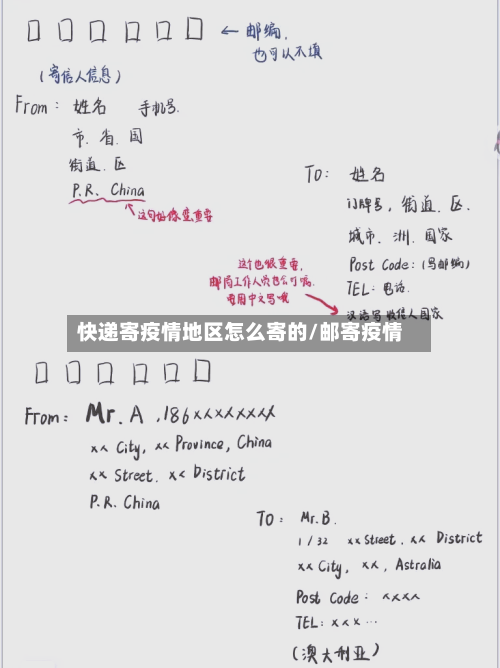 ← 邮编.
也可以不填
(寄信人信息)
From: 姓名 手机号.
市. 省. 国
街道. 区
P.R. China
这句好像蛮重要
To: 姓名
门牌号, 街道. 区.
城市. 洲. 国家
Post Code: (写邮编)
TEL: 电话.
汉语写收信人国家
这个也很重要,
邮局工作人员
要用中文写哦
快递寄疫情地区怎么寄的/邮寄疫情
From: Mr. A ,186xxxxxxxx
xx City, xx Province, China
xx Street. xx District
P.R. China
TO: Mr.B.
1/32 xx Street. xx District
xx City, xx, Astralia
Post Code: xxxx
TEL: xxx...
(澳大利亚)